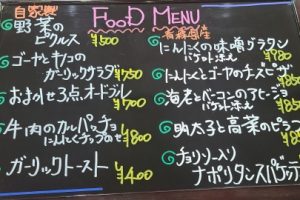 FOOD MENU
自家製
野菜の
ピクルス ¥500
ゴーヤとキノコの
ガーリックサラダ ¥750
おまかせ3点オードブル
¥1700
牛肉のカルパッチョ
にんにくチップのせ ¥800
ガーリックトースト ¥400
にんにくの味噌グラタン
バケット添え
にんにくとゴーヤのチーズピザ
海老とベーコンのアヒージョ
バケット添え
明太子と高菜のピラフ
チョリソー入り
ナポリタンスパゲッティ